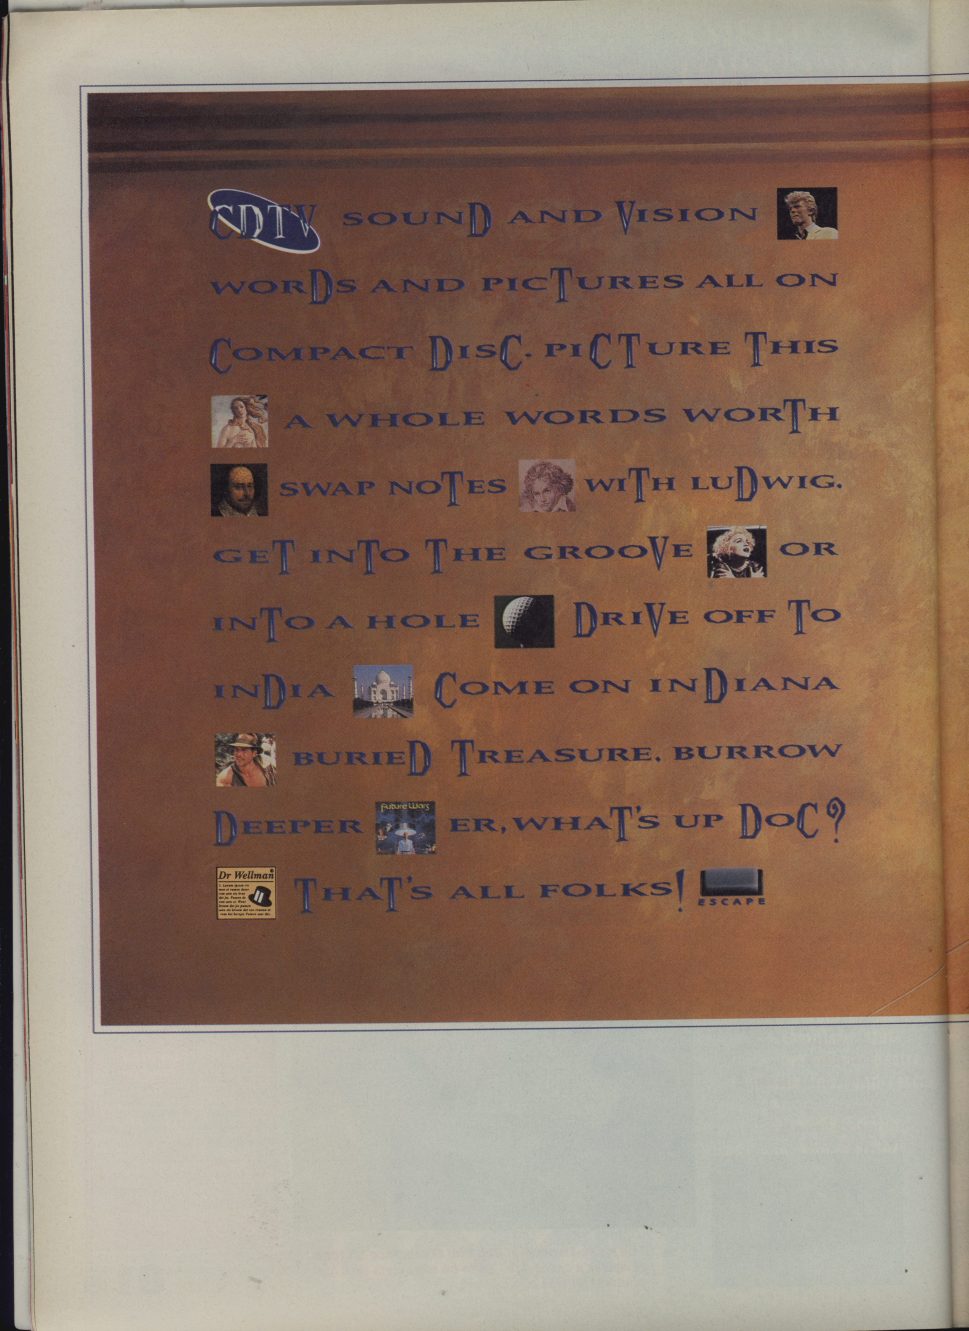 CDTV SOUND AND VISION
WORDS AND PICTURES ALL ON
COMPACT DISC. PICTURE THIS
A WHOLE WORDS WORTH
SWAP NOTES WITH LUDWIG.
GET INTO THE GROOVE OR
INTO A HOLE DRIVE OFF TO
INDIA COME ON INDIANA
BURIED TREASURE. BURROW
Future Wars
DEEPER ER, WHAT'S UP DOC?
Dr Wellman
THAT'S ALL FOLKS!
ESCAPE